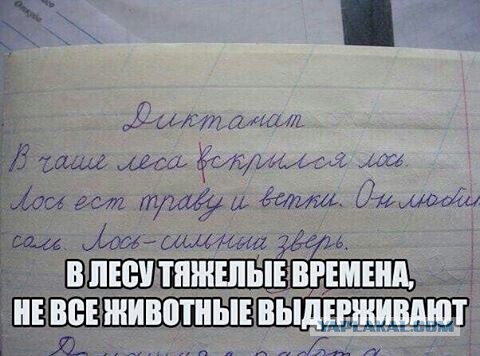 Диктанат
В чаше леса вскрылся лось.
Лось ест траву и ветки. Он любит
соль. Лось-сильный зверь.
В ЛЕСУ ТЯЖЕЛЫЕ ВРЕМЕНА,
НЕ ВСЕ ЖИВОТНЫЕ ВЫДЕРЖИВАЮТ
YAPLAKAL.COM
Домашняя работа